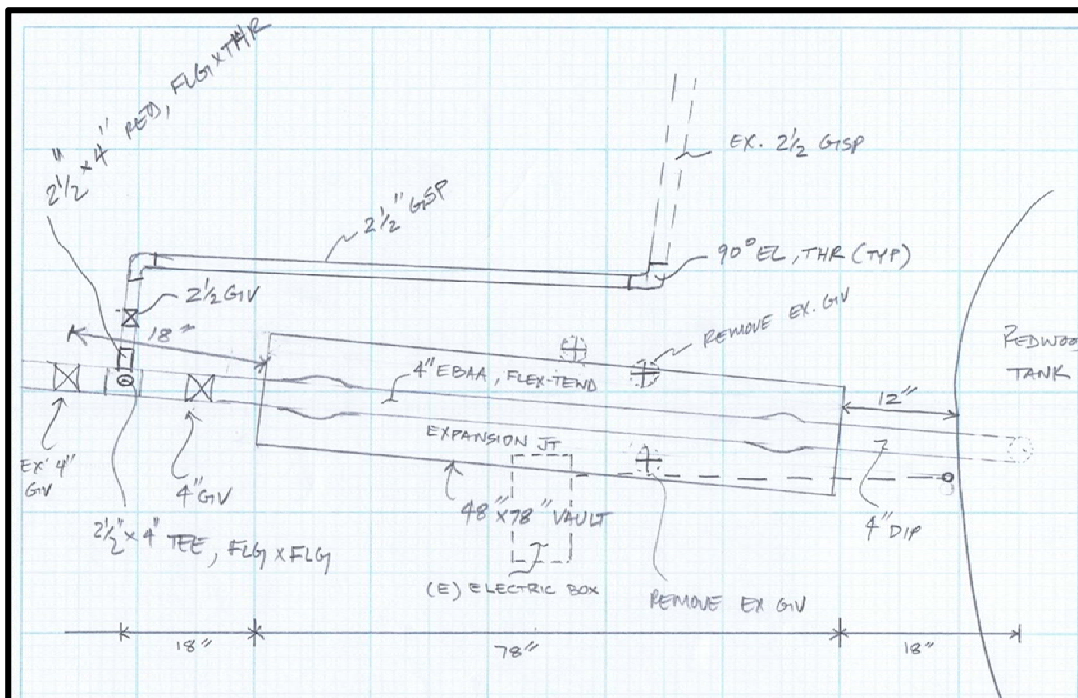 2½" x 4" RED, FLG x THR
2½" GSP
EX. 2½ GSP
90° EL, THR (TYP)
2½ GV
18"
REMOVE EX. GV
REDWOO
TANK
4" EBAA, FLEX-TEND
12"
EXPANSION JT
EX' 4"
GV
4" GV
48"x78" VAULT
4" DIP
2½" x 4" TEE, FLG x FLG
(E) ELECTRIC BOX
REMOVE EX GV
18"
78"
18"